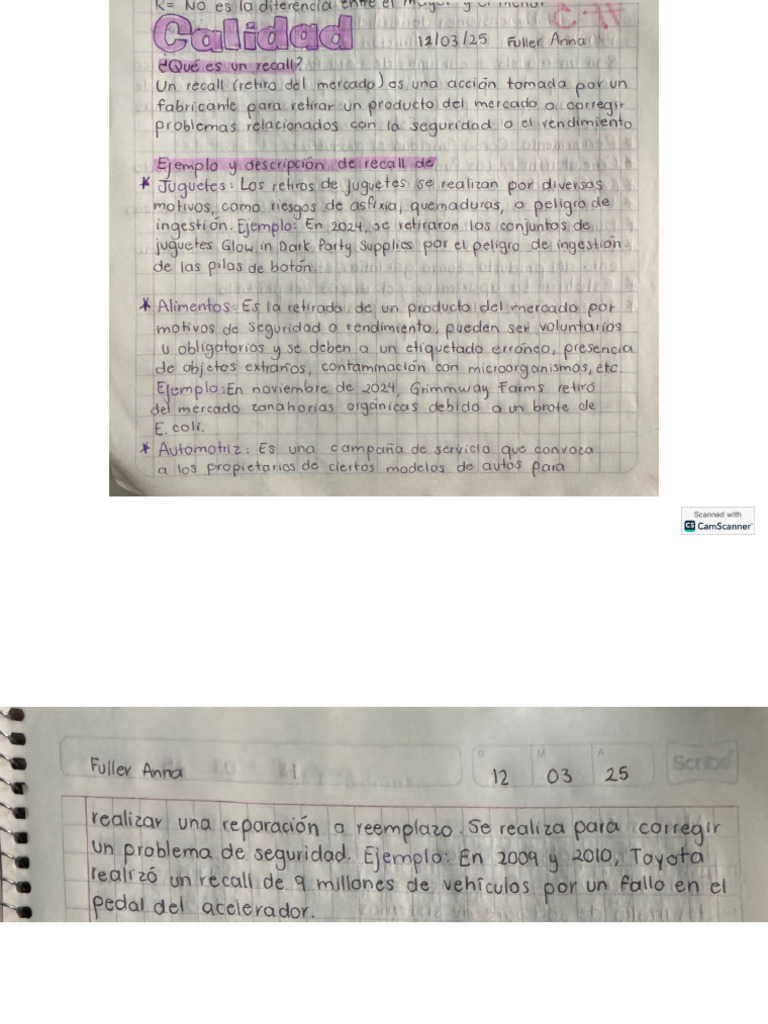 R= No es la diferencia entre el mayor y el menor.
Calidad 12/03/25 Fuller Anna
¿Qué es un recall?
Un recall (retiro del mercado) es una acción tomada por un
fabricante para retirar un producto del mercado o corregir
problemas relacionados con la seguridad o el rendimiento
Ejemplo y descripción de recall de
* Juguetes: Los retiros de juguetes se realizan por diversos
motivos, como riesgos de asfixia, quemaduras, o peligro de
ingestión. Ejemplo: En 2024, se retiraron los conjuntos de
juguetes Glow in Dark Party Supplies por el peligro de ingestión
de las pilas de botón.
* Alimentos: Es la retirada de un producto del mercado por
motivos de seguridad o rendimiento, pueden ser voluntarios
u obligatorios y se deben a un etiquetado erróneo, presencia
de objetos extraños, contaminación con microorganismos, etc.
Ejemplo: En noviembre de 2024, Grimmway Farms retiró
del mercado zanahorias orgánicas debido a un brote de
E. coli.
* Automotriz: Es una campaña de servicio que convoca
a los propietarios de ciertos modelos de autos para
Scanned with
CS CamScanner
D M A
Fuller Anna 12 03 25 Scribe
realizar una reparación o reemplazo. Se realiza para corregir
un problema de seguridad. Ejemplo: En 2009 y 2010, Toyota
realizó un recall de 9 millones de vehículos por un fallo en el
pedal del acelerador.